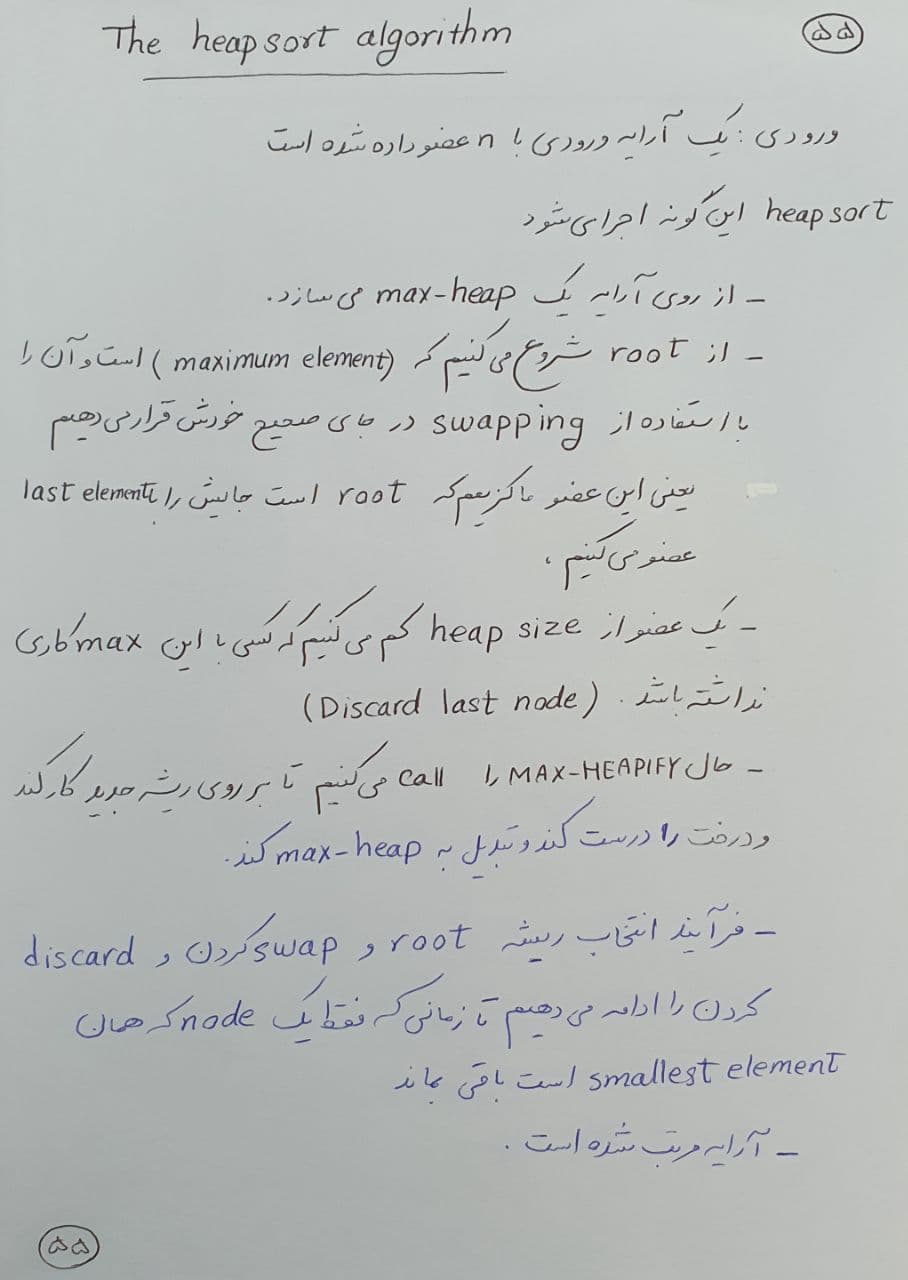 The heapsort algorithm
۵۵
ورودی : یک آرایه ورودی با n عضو داده شده است
heap sort این گونه اجرا می شود
- از روی آرایه یک max-heap می سازد.
- از root شروع می کنیم که (maximum element) است و آن را
با استفاده از swapping در جای صحیح خودش قرار می دهیم
یعنی این عضو ماکزیمم که root است جایش را با last element
عضو می کنیم ،
- یک عضو از heap size کم می کنیم که کسی با این max کاری
نداشته باشد . (Discard last node)
- حال MAX-HEAPIFY را call می کنیم تا بر روی ریشه جدید کار کند
و درخت را درست کند و تبدیل به max-heap کند.
- فرآیند انتخاب ریشه root و swap کردن و discard
کردن را ادامه می دهیم تا زمانی که فقط یک node که همان
smallest element است باقی بماند
- آرایه مرتب شده است .
۵۵